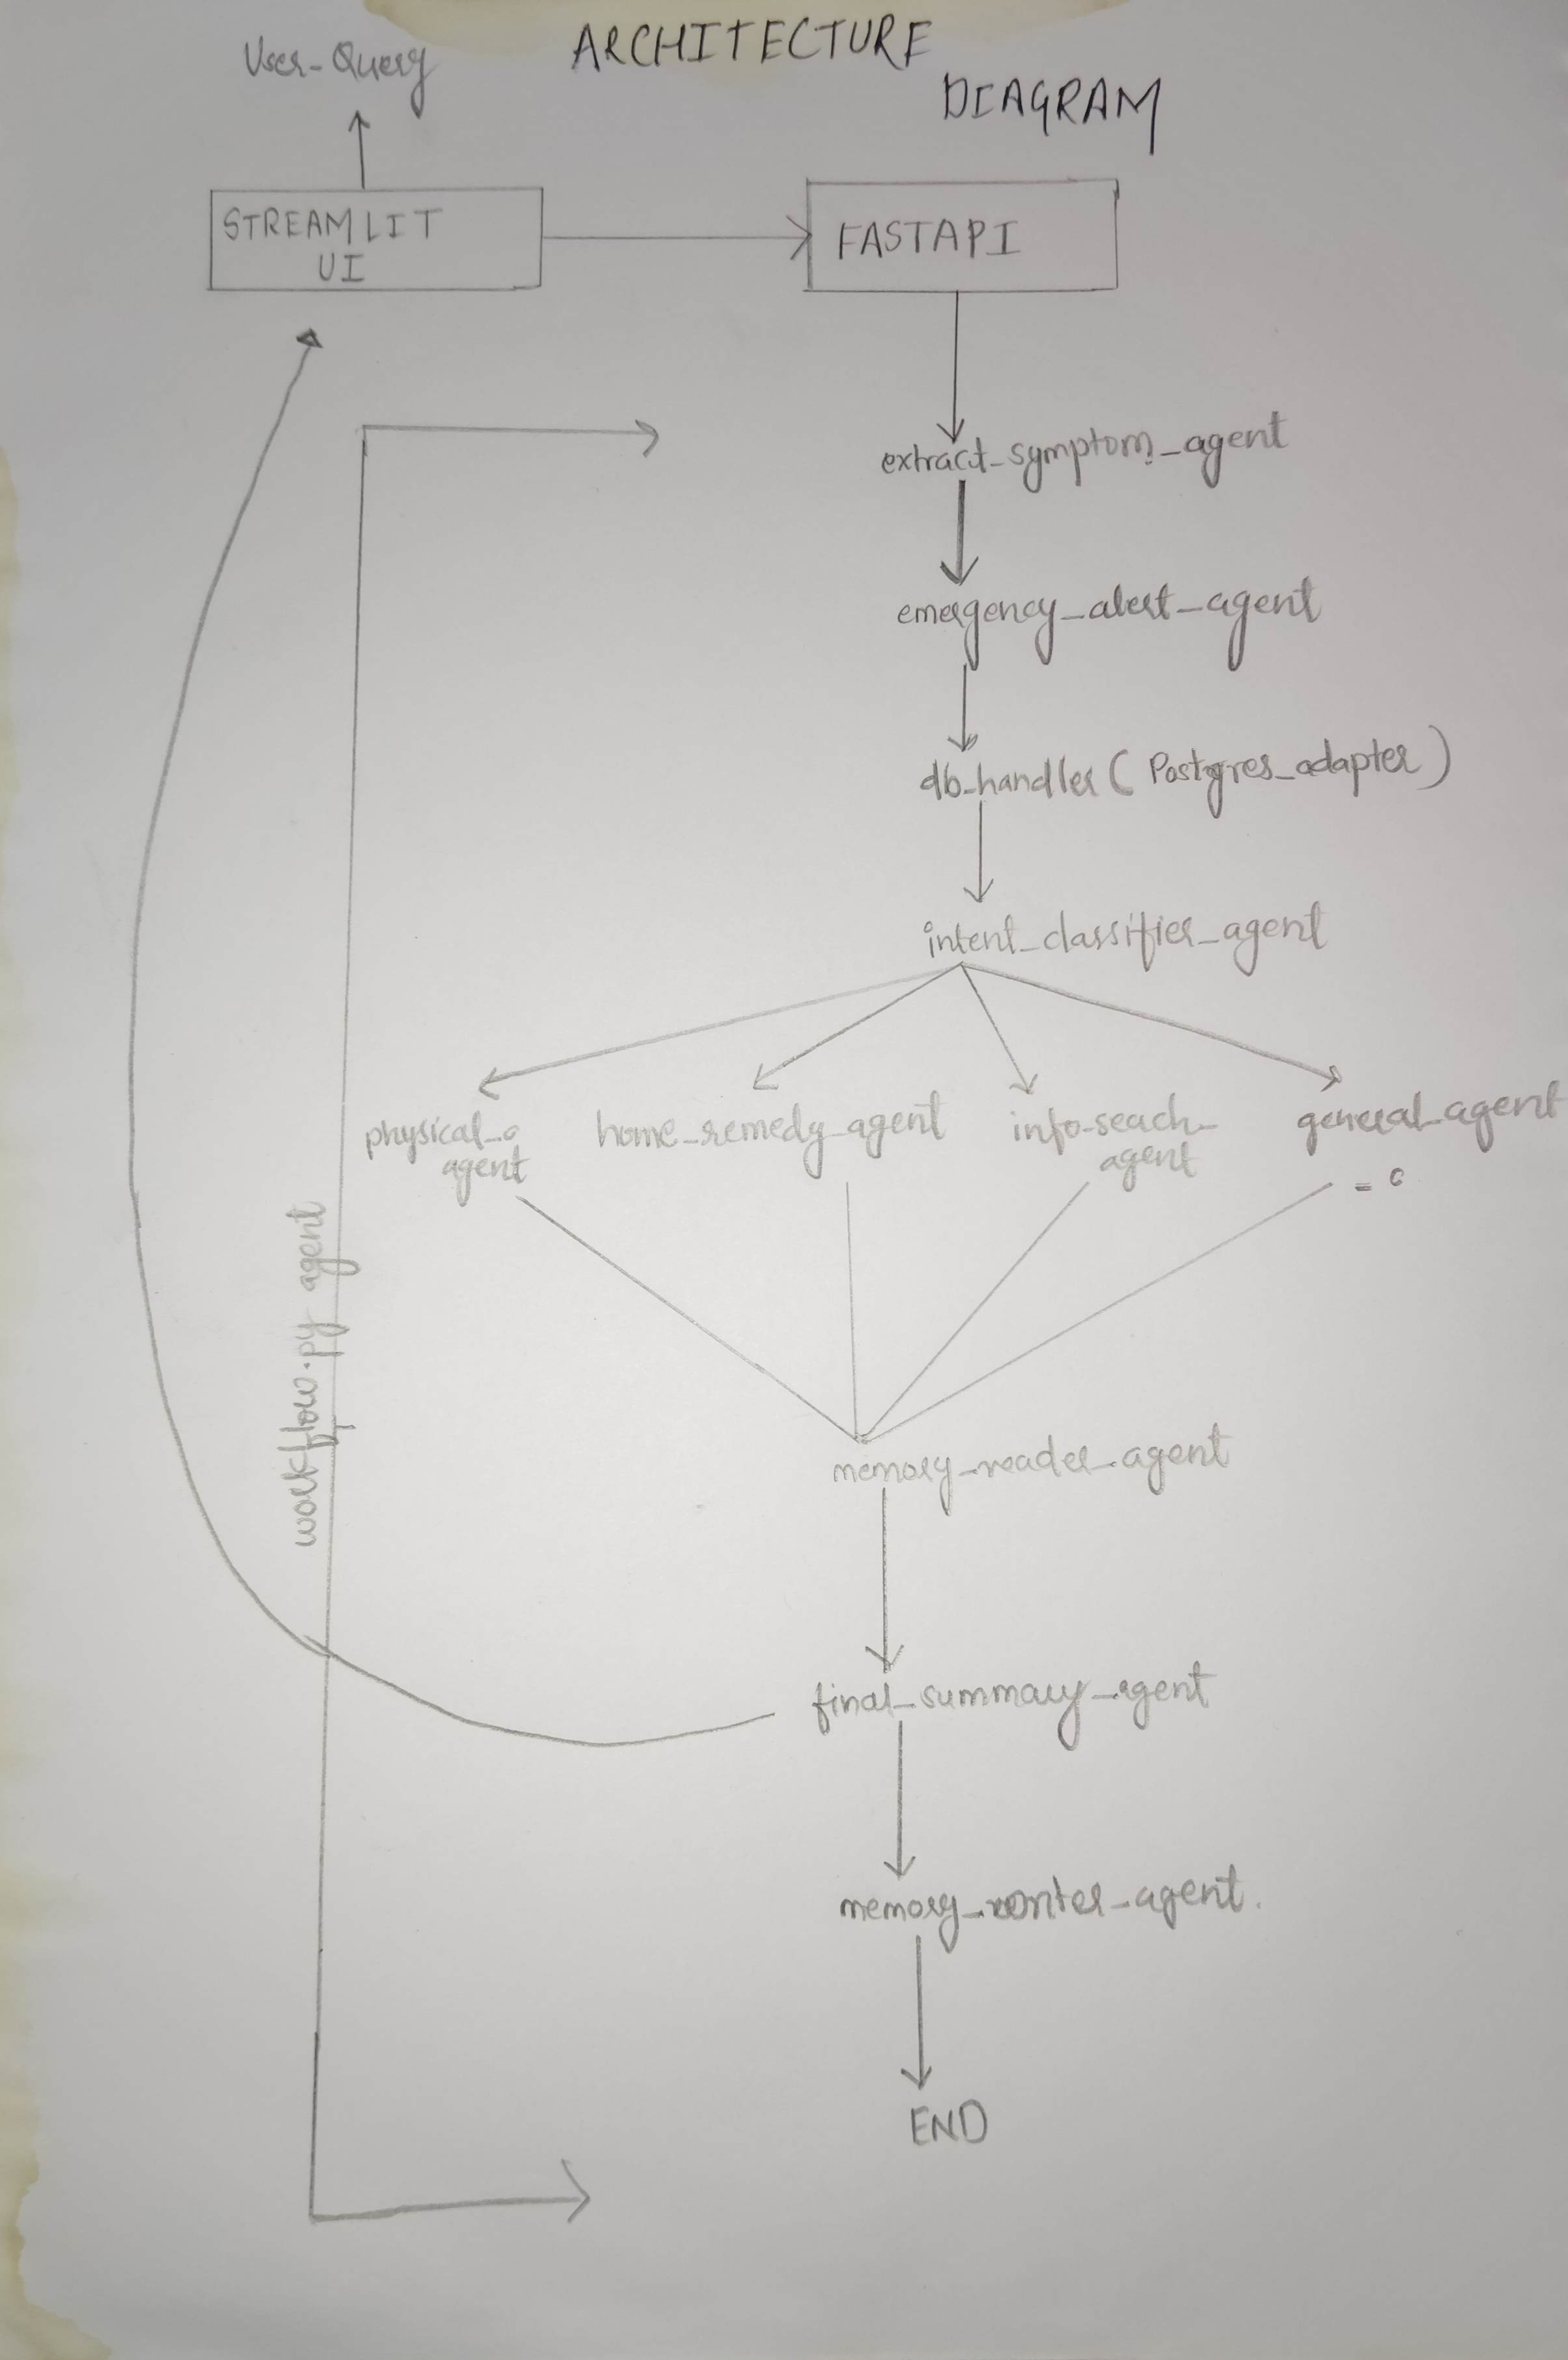 ARCHITECTURE
DIAGRAM
User-Query
STREAMLIT
UI
FASTAPI
extract_symptom_agent
emergency_alert_agent
db_handler ( Postgres_adapter )
intent_classifier_agent
physical_
agent
home_remedy_agent
info-seach_
agent
general_agent
workflow.py agent
memory_reader_agent
final_summary_agent
memory_writer_agent.
END